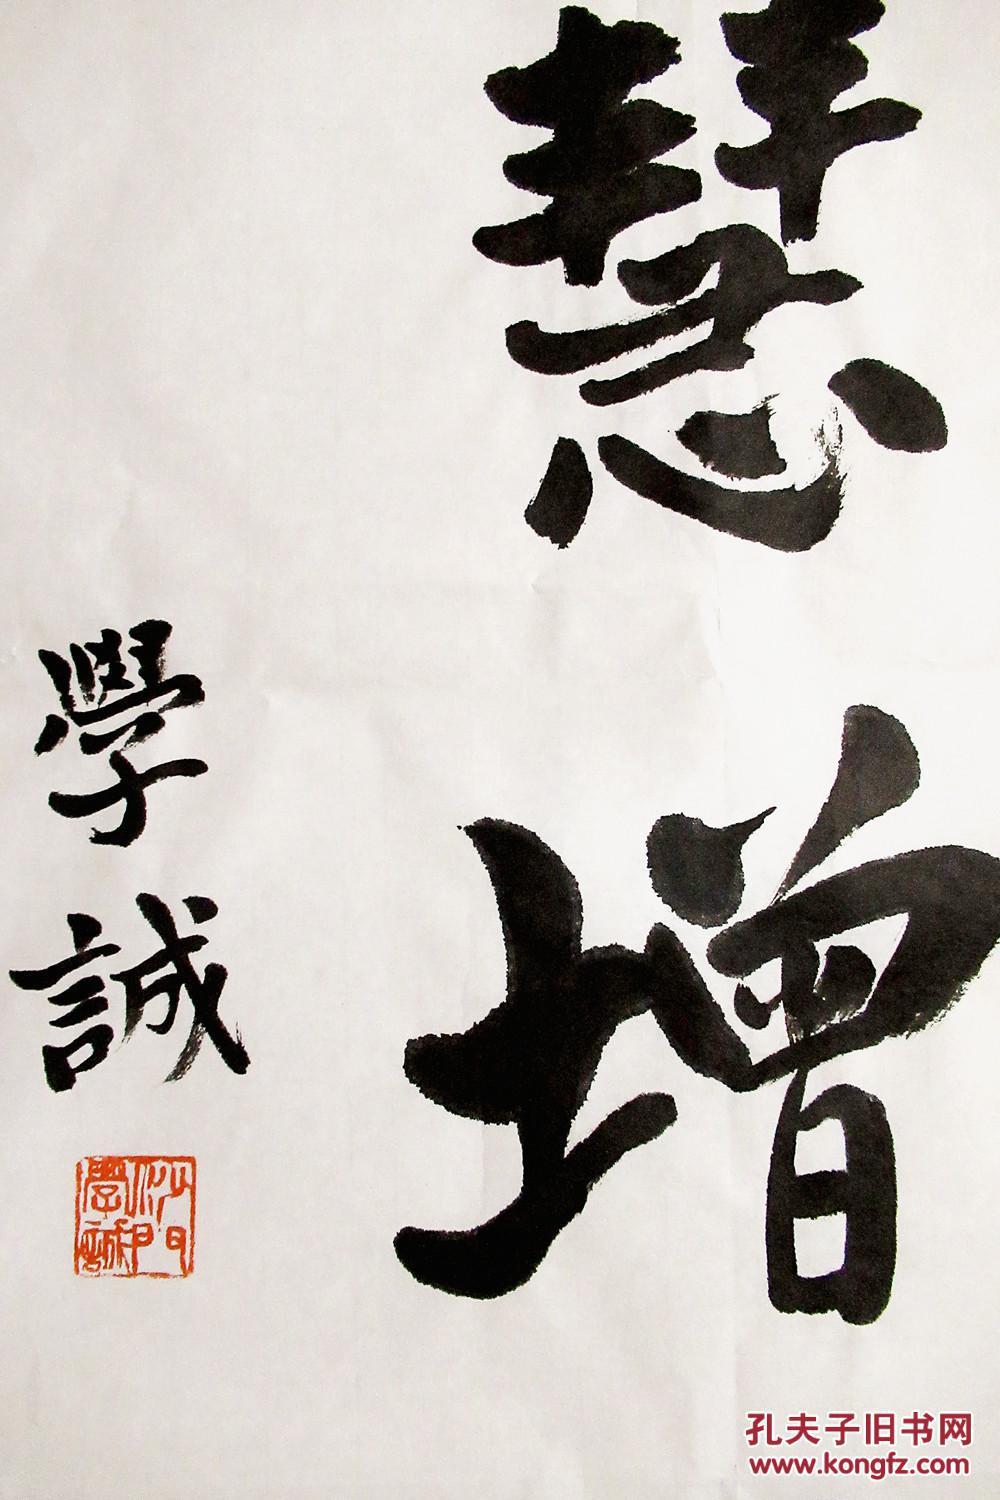 慧增
學誠
沙門學誠
孔夫子旧书网
www.kongfz.com